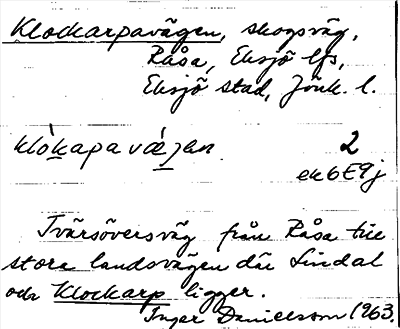 Klockarpavägen, skogsväg,
Råsa, Eksjö lfs,
Eksjö stad, Jönk. l.
klò̱kapavæ̀jan 2
ek6E9j
Tvärsöversväg från Råsa till
stora landsvägen där Lindal
och Klockarp ligger.
Inger Danielsson 1963.